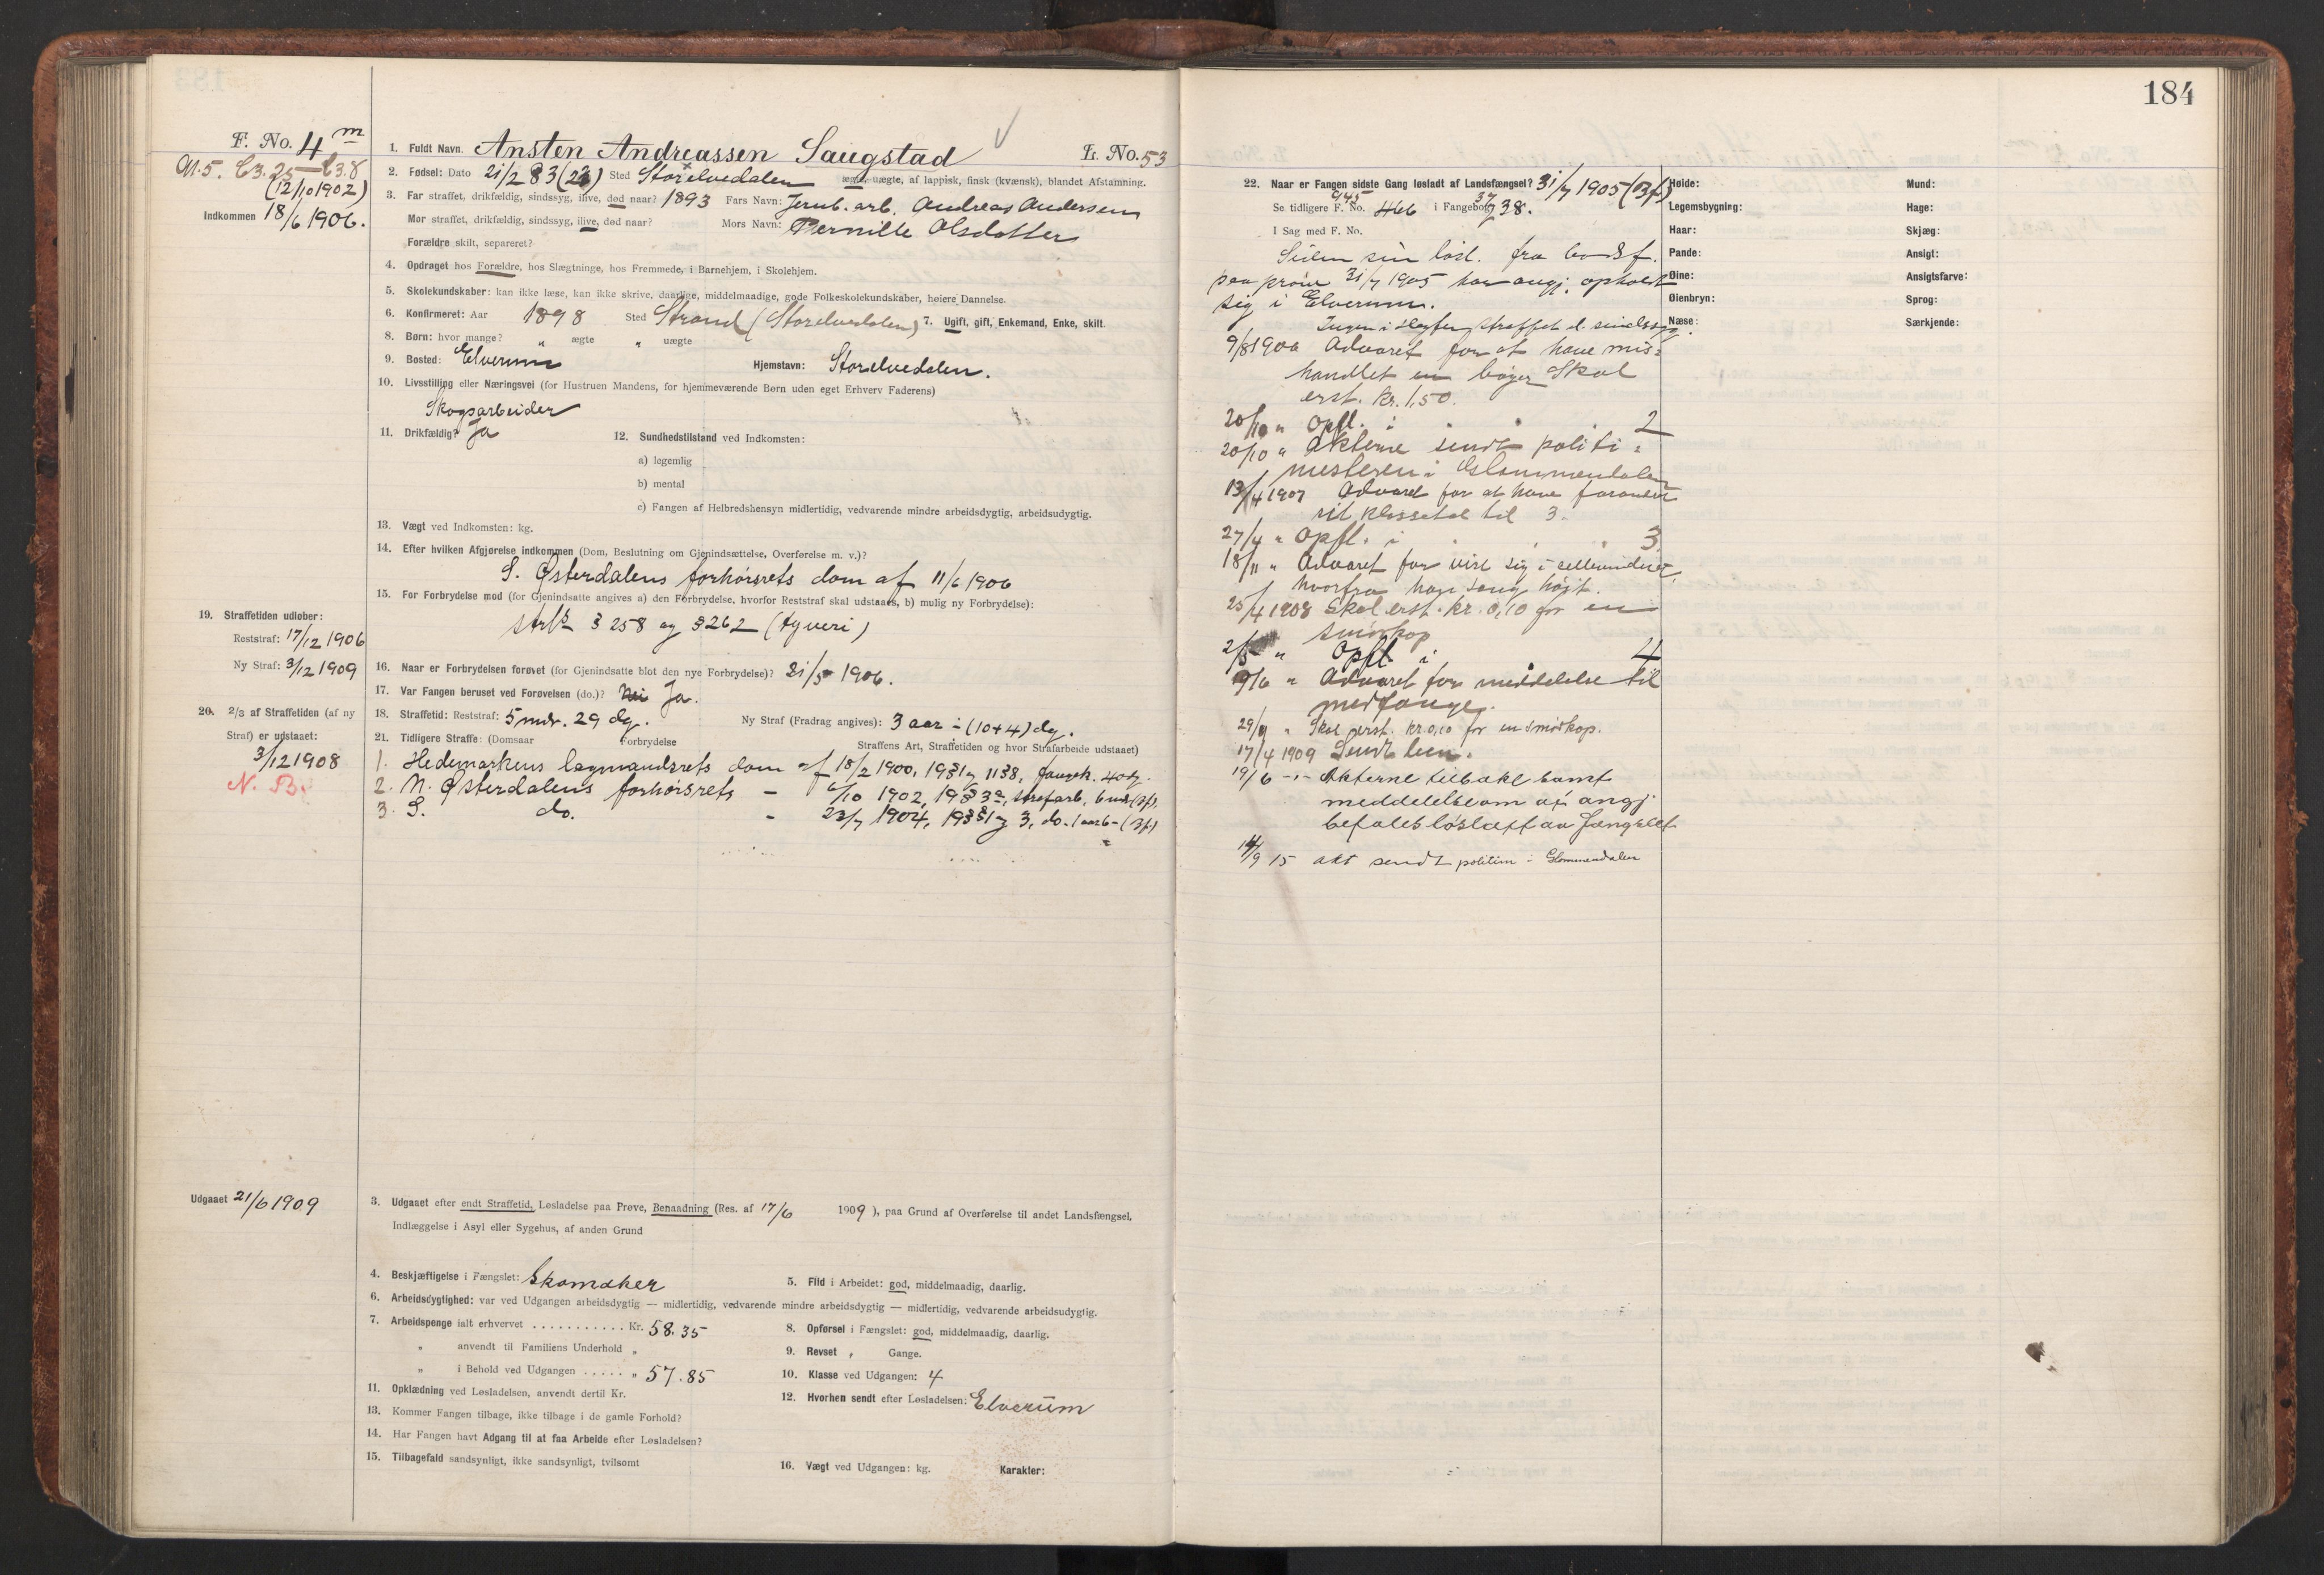 184
F. No. 4 m
M.5. C3.25 — C3.8
(12/10 1902)
Indkommen 18/6 1906.
1. Fuldt Navn. Ansten Andreassen Saugstad L. No. 53
2. Fødsel: Dato 21/2 83 (23) Sted Storelvedalen ægte, uægte, af lappisk, finsk (kvænsk), blandet Afstamning.
3. Far straffet, drikfældig, sindssyg, ilive, død naar? 1893 Fars Navn: Jernb. arb. Andreas Andersen
Mor straffet, drikfældig, sindssyg, ilive, død naar? Mors Navn: Pernille Olsdatter
Forældre skilt, separeret?
4. Opdraget hos Forældre, hos Slægtninge, hos Fremmede, i Barnehjem, i Skolehjem.
5. Skolekundskaber: kan ikke læse, kan ikke skrive, daarlige, middelmaadige, gode Folkeskolekundskaber, høiere Dannelse.
6. Konfirmeret: Aar 1898 Sted Strand (Storelvedalen) 7. Ugift, gift, Enkemand, Enke, skilt.
8. Børn: hvor mange? " ægte " uægte
9. Bosted: Elverum Hjemstavn: Storelvedalen.
10. Livsstilling eller Næringsvei (for Hustruen Mandens, for hjemmeværende Børn uden eget Erhverv Faderens)
Skogsarbeider
11. Drikfældig? Ja 12. Sundhedstilstand ved Indkomsten:
a) legemlig
b) mental
c) Fangen af Helbredshensyn midlertidig, vedvarende mindre arbeidsdygtig, arbeidsudygtig.
13. Vægt ved Indkomsten: kg.
14. Efter hvilken Afgjørelse indkommen (Dom, Beslutning om Gjenindsættelse, Overførelse m. v.)?
S. Østerdalens forhørsrets dom af 11/6 1906
15. For Forbrydelse mod (for Gjenindsatte angives a) den Forbrydelse, hvorfor Reststraf skal udstaaes, b) mulig ny Forbrydelse):
strl. § 258 og § 262 (tyveri)
19. Straffetiden udløber:
Reststraf: 17/12 1906
Ny Straf: 3/12 1909
16. Naar er Forbrydelsen forøvet (for Gjenindsatte blot den nye Forbrydelse)? 21/5 1906.
17. Var Fangen beruset ved Forøvelsen (do.)? Nei Ja.
20. 2/3 af Straffetiden (af ny
Straf) er udstaaet:
3/12 1908
N. B.
18. Straffetid: Reststraf: 5 mdr. 29 dg. Ny Straf (Fradrag angives): 3 aar ÷ (10+4) dg.
21. Tidligere Straffe: (Domsaar Forbrydelse Straffens Art, Straffetiden og hvor Strafarbeide udstaaet)
1. Hedemarkens lagmandsrets dom af 18/2 1900, 19 § 1 jf 11 § 8, fængsl. 40 dg.
2. N. Østerdalens forhørsrets — 6/10 1902, 19 § 3a, strafarb. 6 mdr (Bf).
3. S. do. — 23/7 1904, 19 §§ 1 og 3, do. 1 aar 6 — (Bf)
Udgaaet 21/6 1909
3. Udgaaet efter endt Straffetid, Løsladelse paa Prøve, Benaadning (Res. af 17/6 1909), paa Grund af Overførelse til andet Landsfængsel,
Indlæggelse i Asyl eller Sygehus, af anden Grund
4. Beskjæftigelse i Fængslet: Skomaker 5. Flid i Arbeidet: god, middelmaadig, daarlig.
6. Arbeidsdygtighed: var ved Udgangen arbeidsdygtig — midlertidig, vedvarende mindre arbeidsdygtig — midlertidig, vedvarende arbeidsudygtig.
7. Arbeidspenge ialt erhvervet . . . . . . . . . . . Kr. 58.35 8. Opførsel i Fængslet: god, middelmaadig, daarlig.
" anvendt til Familiens Underhold " 9. Revset , Gange.
" i Behold ved Udgangen . . . . . " 57.85 10. Klasse ved Udgangen: 4
11. Opklædning ved Løsladelsen, anvendt dertil Kr. 12. Hvorhen sendt efter Løsladelsen: Elverum
13. Kommer Fangen tilbage, ikke tilbage i de gamle Forhold?
14. Har Fangen havt Adgang til at faa Arbeide efter Løsladelsen?
15. Tilbagefald sandsynligt, ikke sandsynligt, tvilsomt
16. Vægt ved Udgangen: kg. Karakter:
22. Naar er Fangen sidste Gang løsladt af Landsfængsel? 31/7 1905 (Bf)
Se tidligere F. No. 945 466 i Fangebog 37 og 38.
I Sag med F. No.
Siden sin løsl. fra bodsf.
paa prøve 31/7 1905 har angj. opholdt
sig i Elverum.
Ingen i slegten straffet el. sindssyg.
9/8 1906 Advaret for at have mis-
handlet en bøger. Skal
erst. kr. 1,50.
20/10 " Opfl. i 2
20/10 " Akterne sendt politi-
mesteren i Glommendalen
13/4 1907 Advaret for at have forandret
sit klassetal til 3.
27/4 " Opfl. i 3
18/11 " Advaret for vise sig i cellevinduet,
hvorfra han sang høit.
25/4 1908 Skal erst. kr. 0,10 for en
smørkop
2/5 " Opfl i 4
9/6 " Advaret for meddelelse til
medfange.
29/9 " Skal erst. kr 0,10 for en smørkop.
17/4 1909 Sendt ben.
19/6 -"- Akterne tilbake samt
meddelelse om at angj.
befales løslatt av fængslet
14/9 15 akt sendt politim i Glommendalen
Høide:
Legemsbygning:
Haar:
Pande:
Øine:
Øienbryn:
Næse:
Mund:
Hage:
Skjæg:
Ansigt:
Ansigtsfarve:
Sprog:
Særkjende: